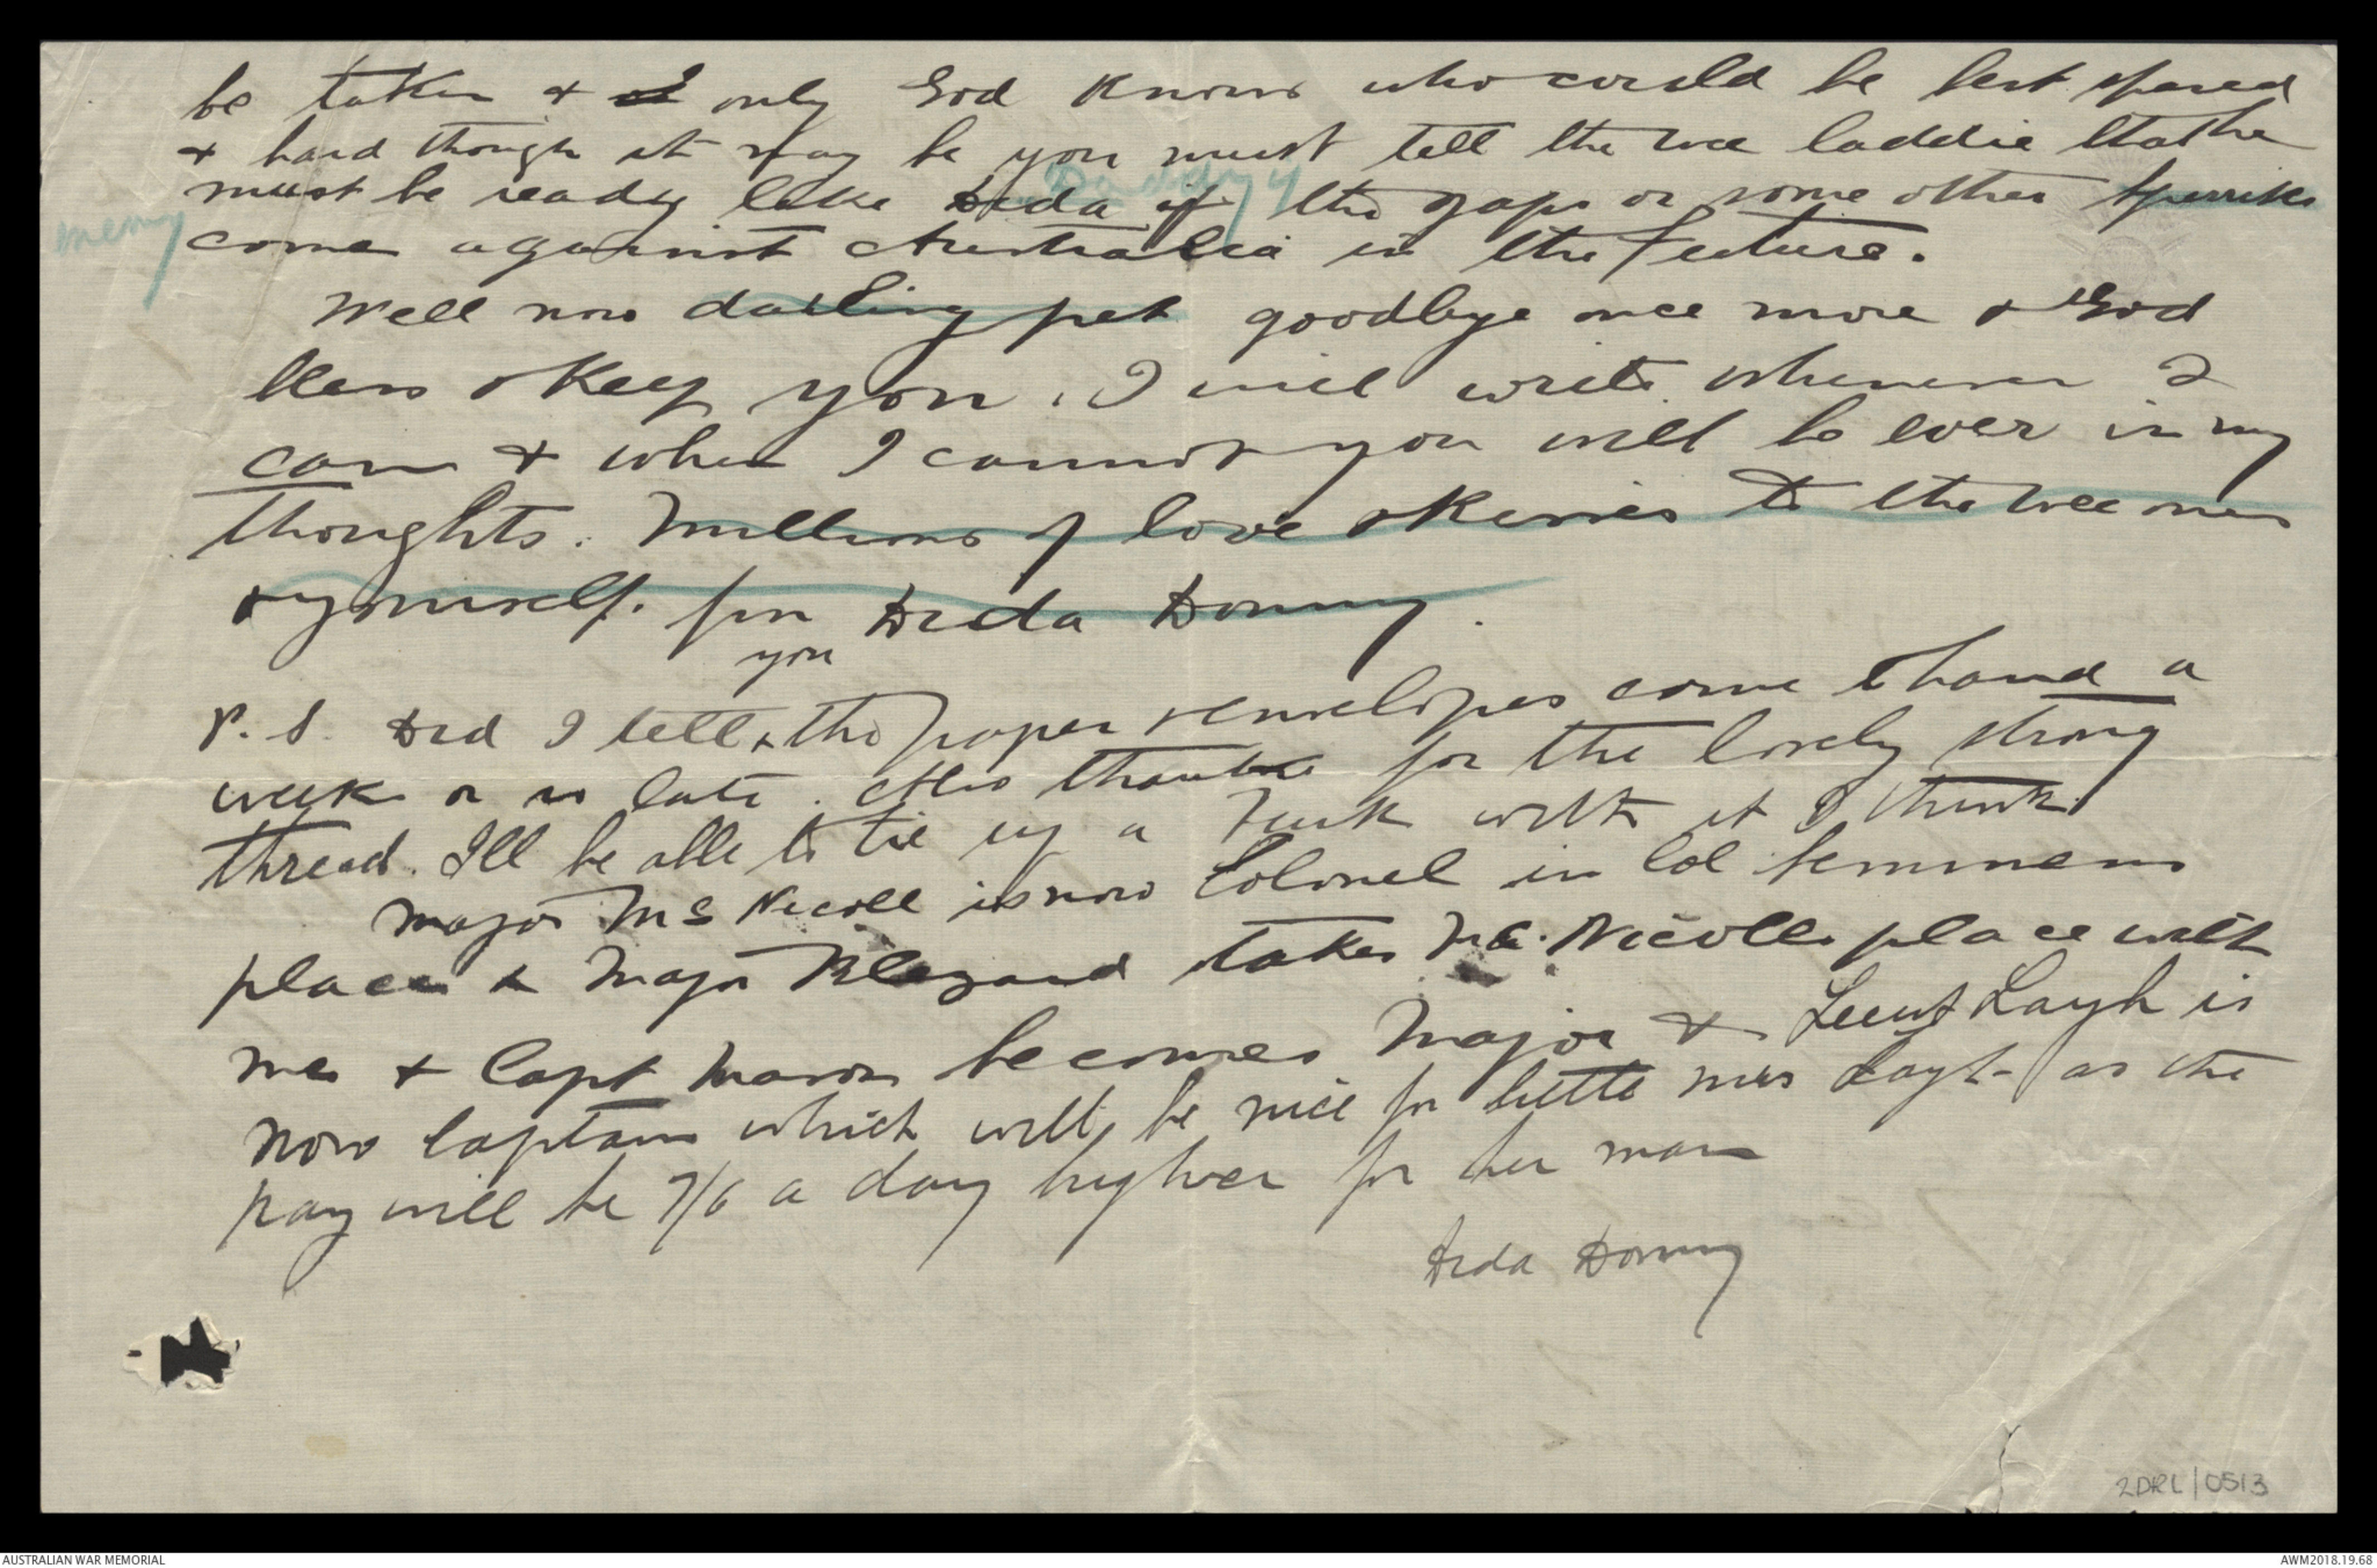 be taken & only God knows who could be best spared
& hard though it may be you must tell the wee laddie that he
Daddy
must be ready like Dida if the Japs or some other
enemy
come against Australia in the future.
Well now darling pet goodbye once more & God
bless & keep you. I will write whenever I
can & when I cannot you will be ever in my
thoughts. Millions of love & kisses to the wee ones
& yourself. from Dida Donny.
you
P.S. Did I tell ^ the paper & envelopes come to hand a
week or so late. Also thanks for the lovely strong
thread. I'll be able to tie up a Turk with it I think
Major McNicoll is now Colonel in Col Semmens
place & Major Blezard takes McNicolls place with
me & Capt Mason becomes Major & Lieut Layh is
now Captain which will be nice for little Mrs Layh as the
pay will be 7/6 a day higher for her man
Dida Donny
2DRL/0513
AUSTRALIAN WAR MEMORIAL
AWM2018.19.68